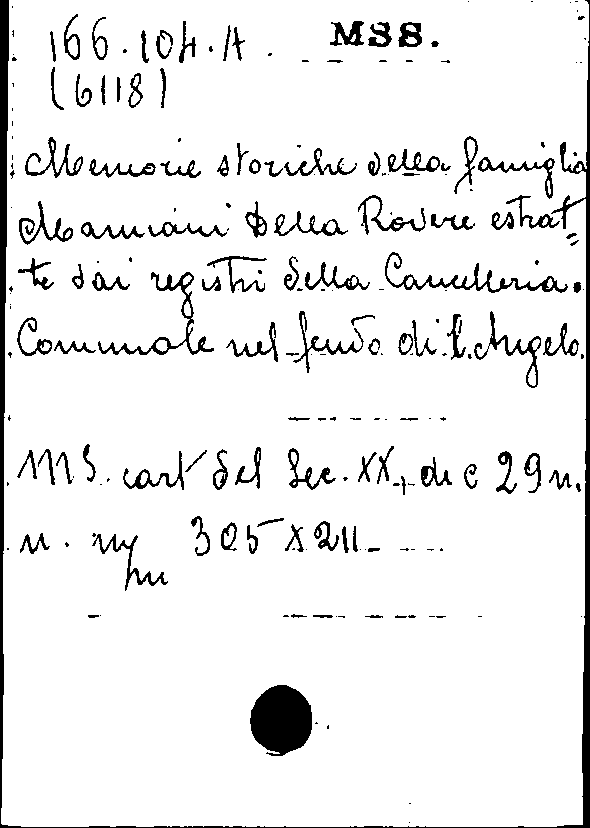 166.104.A. MSS.
(6118)
Memorie storiche della famiglia
Mamiani Della Rovere estrat=
te dai registri della Cancelleria
Comunale nel feudo di S. Angelo.
MS. cart del Sec. XX, di c 29 n.
n. mm 305 x 211